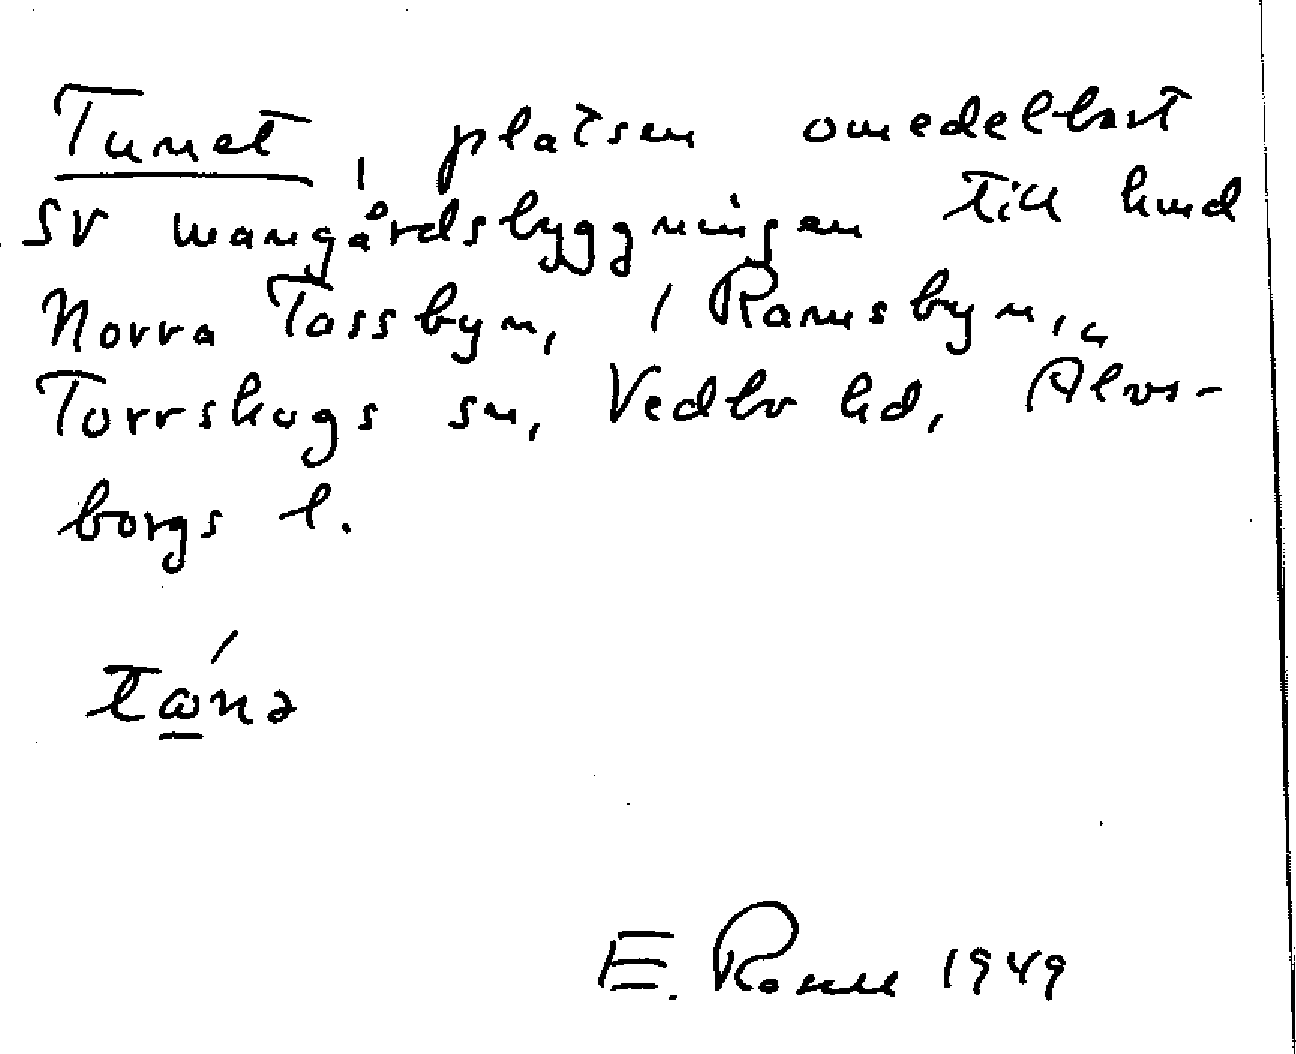 Tunet, platsen omedelbart
SV mangårdsbyggningen till hmd
Norra Tossbyn, i Ramsbyn,
Torrskogs sn, Vedbo hd, Älvs-
borgs l.
tɷ́nə
E. Rosell 1949